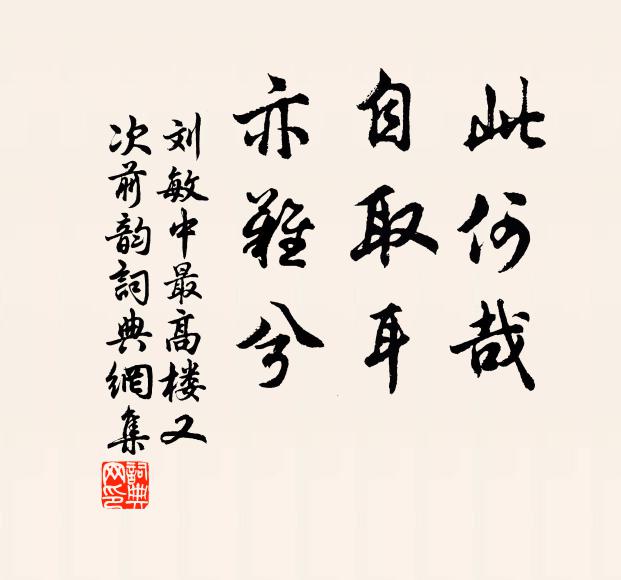 此何哉
自取耳
亦难兮
刘敏中最高楼又
次前韵詞典網集
詞典网印